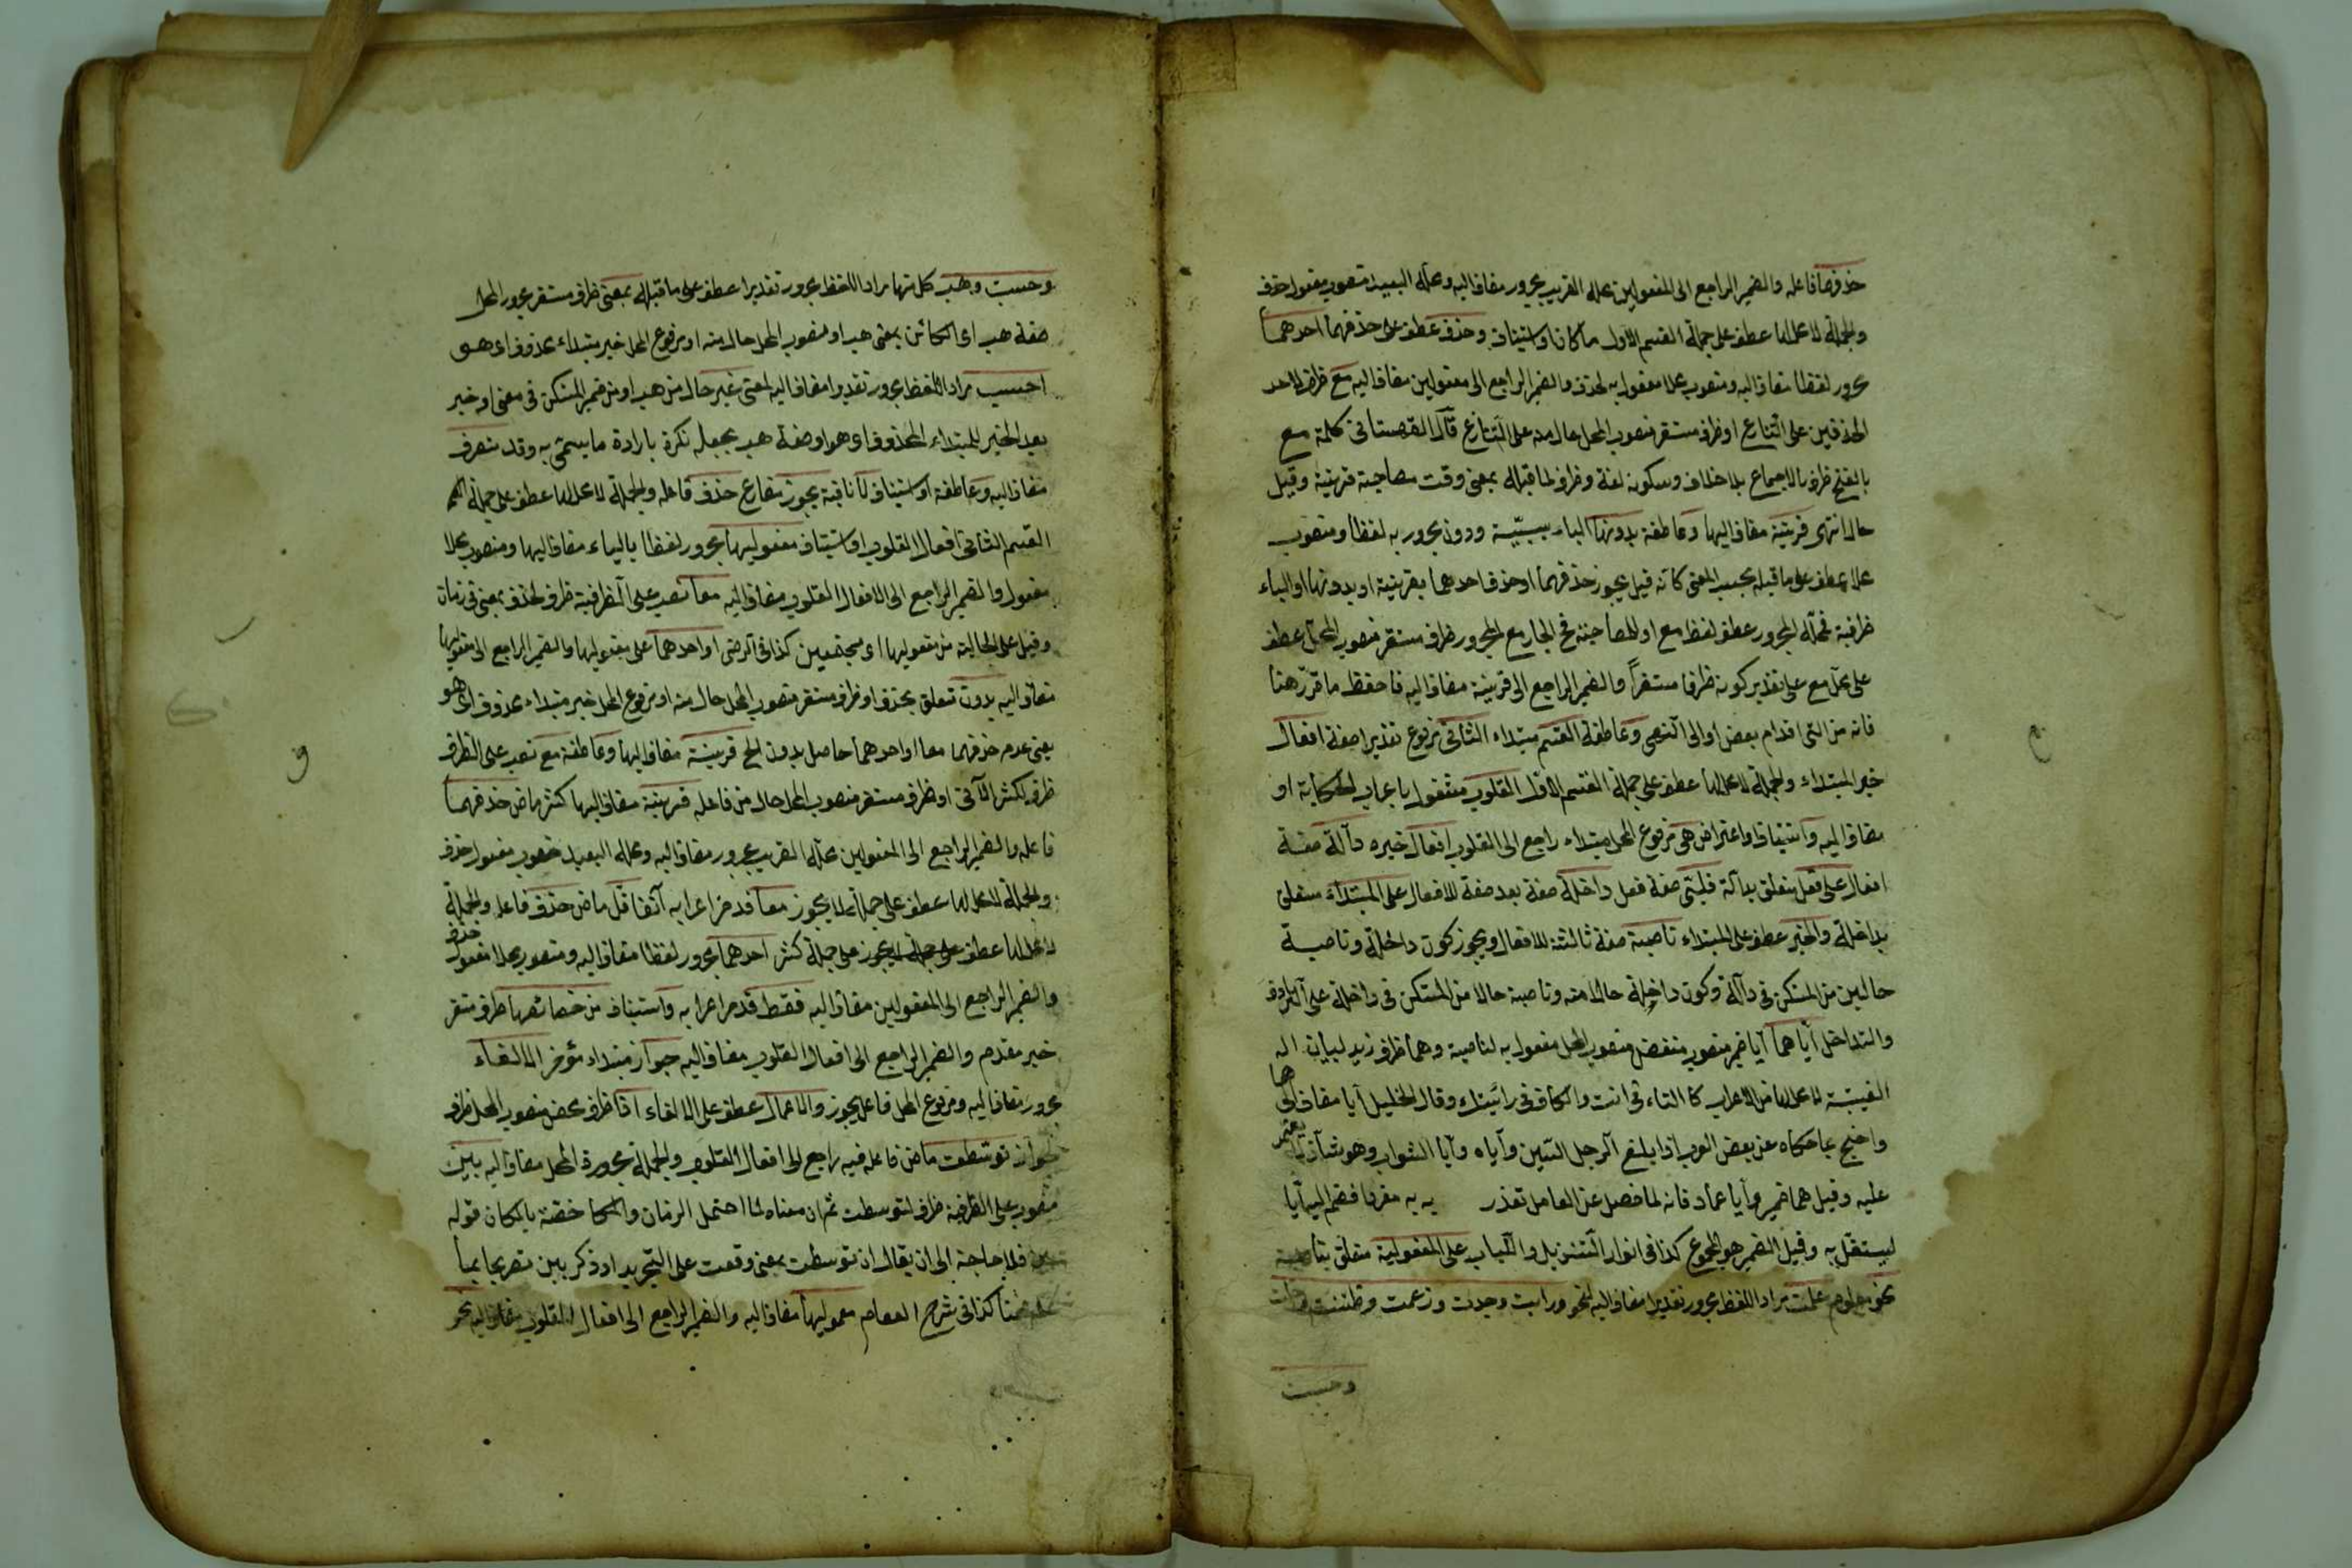 حذفهما فاعله والضمير الراجع الى المفعولين محله القريب مجرور مضاف اليه ومحله البعيد منصوب مفعول حذف
والجملة لا محل لها عطف على جملة القسم الاول ما كانا او استيناف وحذف عطف على حذفهما احدهما
مجرور لفظا مضاف اليه ومنصوب محلا مفعول به لحذف والضمير الراجع الى مفعولين مضاف اليه مع ظرف لاحد
الحذفين على التنازع او ظرف مستقر منصوب المحل حال منه على التنازع قال القهستانى كلمة مع
بالفتح ظرف بالاجماع بلا خلاف وسكونه لغة وظرف لما قبله بمعنى وقت مصاحبة قرينة وقيل
حال انتهى قرينة مضاف اليها وعاطفة بدونها الباء سببية ودون مجرور به لفظا ومنصوب
محلا عطف على ما قبله بحسب المعنى كانه قيل يجوز حذفهما او حذف احدهما بقرينة او بدونها او الباء
ظرفية فمحله المجرور عطف لفظ مع او للمصاحبة فح الجار مع المجرور ظرف مستقر منصوب المحل عطف
على محل مع على تقدير كونه ظرفا مستقرا والضمير الراجع الى قرينة مضاف اليه فاحفظ ما قرر هنا
فانه من التى اقدام بعض اولى النهى وعاطفة القسم مبتداء الثانى مرفوع تقديرا صفة افعال
خبر المبتداء والجملة لا محل لها عطف على جملة القسم الاول القلوب مشغول باعراب الحكاية او
مضاف اليه واستيناف او اعتراض هى مرفوع المحل مبتداء راجع الى القلوب افعال خبره دآلة صفة
افعال على فعل متعلق بدآلة قلبى صفة فعل داخلة صفة بعد صفة للافعال على المبتداء متعلق
بداخلة والخبر عطف على المبتداء ناصبة صفة ثالثة للافعال ويجوز كون داخلة وناصبة
حالين من المستكن فى دآلة وكون داخلة حالا منه وناصبة حالا من المستكن فى داخلة على الترادف
والتداخل اياهما ايا ضمير منصوب منفصل منصوب المحل مفعول به لناصبة وهما ظرف زيد لبيان اله
الغيبة لا محل لها من الاعراب كالتاء فى انت والكاف فى رأيتك وقال الخليل ايا مضاف الى هما
واحتج بما حكاه عن بعض العرب اذا بلغ الرجل الستين فاياه وايا الشواب وهو شاذ لا يعتمد
عليه وقيل هما ضمير وايا عماد فانه لما فصل عن العامل تعذر به مفردا فضم اليه ايا
ليستقل به وقيل الضمير هو المجموع كذا فى انوار التنزيل واللباب على المفعولية متعلق بناصبة
نحو علمت مراد اللفظ مجرور تقديرا مضاف اليه لنحو ورأيت وجدت وزعمت وظننت وخلت
وحسبت
وحسبت وهب كل منها مراد اللفظ مجرور تقديرا عطف على ما قبله بمعنى ظرف مستقر مجرور المحل
صفة هب اى الكائن بمعنى هب او منصوب المحل حال منه او مرفوع المحل خبر مبتداء محذوف اى هو
احسب مراد اللفظ مجرور تقديرا مضاف اليه لمعنى غير حال من هب او من ضمير المستكن فى معنى او خبر
بعد الخبر للمبتداء المحذوف اى هو او صفة هب بجعله نكرة بارادة ما يسمى به وقد
مضاف اليه وعاطفة او استيناف لا نافية يجوز مضارع حذف فاعله والجملة لا محل لها عطف على جملة
القسم الثانى افعال القلوب او استيناف مفعوليها مجرور لفظا بالياء مضاف اليها ومنصوب محلا
مفعول والضمير الراجع الى الافعال القلوب مضاف اليه معا نصب على الظرفية ظرف لحذف بمعنى فى زمان
وقيل على الحالية من مفعوليها اى مجتمعين كذا فى الرضى او احدهما على مفعوليها والضمير الراجع الى مفعوليها
مضاف اليه بدون متعلق بحذف او ظرف مستقر منصوب المحل حال منه او مرفوع المحل خبر مبتداء محذوف اى هو
يعنى عدم حذفهما معا او احدهما حاصل بدون الخ قرينة مضاف اليها وعاطفة مع نصب على الظرف
ظرف لكثر الآتى او ظرف مستقر منصوب المحل حال من فاعله قرينة مضاف اليها كثر ماض حذفهما
فاعله والضمير الراجع الى المفعولين محله القريب مجرور مضاف اليه ومحله البعيد منصوب مفعول حذف
والجملة لا محل لها عطف على جملة لا يجوز معا قد مر اعرابه آنفا قل ماض حذف فاعله والجملة
لا محل لها عطف على جملة كثر احدهما مجرور لفظا مضاف اليه ومنصوب محلا مفعول حذف
والضمير الراجع الى المفعولين مضاف اليه فقط قد مر اعرابه واستيناف من خصائصها ظرف مستقر
خبر مقدم والضمير الراجع الى افعال القلوب مضاف اليه جواز مبتداء مؤخر الالغاء
مجرور مضاف اليه ومرفوع المحل فاعل يجوز والاعمال عطف على الالغاء اذا ظرف محض منصوب المحل ظرف
لجواز توسطت ماض فاعله فيه راجع الى افعال القلوب والجملة مجرورة المحل مضاف اليه بين
منصوب على الظرفية ظرف لتوسطت ثم ان معناه لما احتمل الزمان والمكان خصه بالمكان قوله
بين فلا حاجة الى ان يقال ان توسطت بمعنى وقعت على التجريد او ذكر بين تصريحا بما
ضمنا كذا فى شرح العصام معموليها مضاف اليه والضمير الراجع الى افعال القلوب مضاف اليه نحو